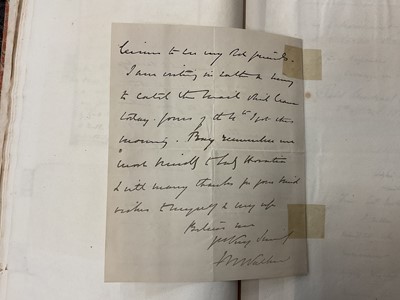 to see my Red friends.
I am writing in rather a hurry
to catch the mail and leave
today. Yours of the 4th I got this
morning. Pray remember me
most kindly to Lady
& with many thanks for your kind
wishes to myself & my wife
Believe me
yrs Very Sincely